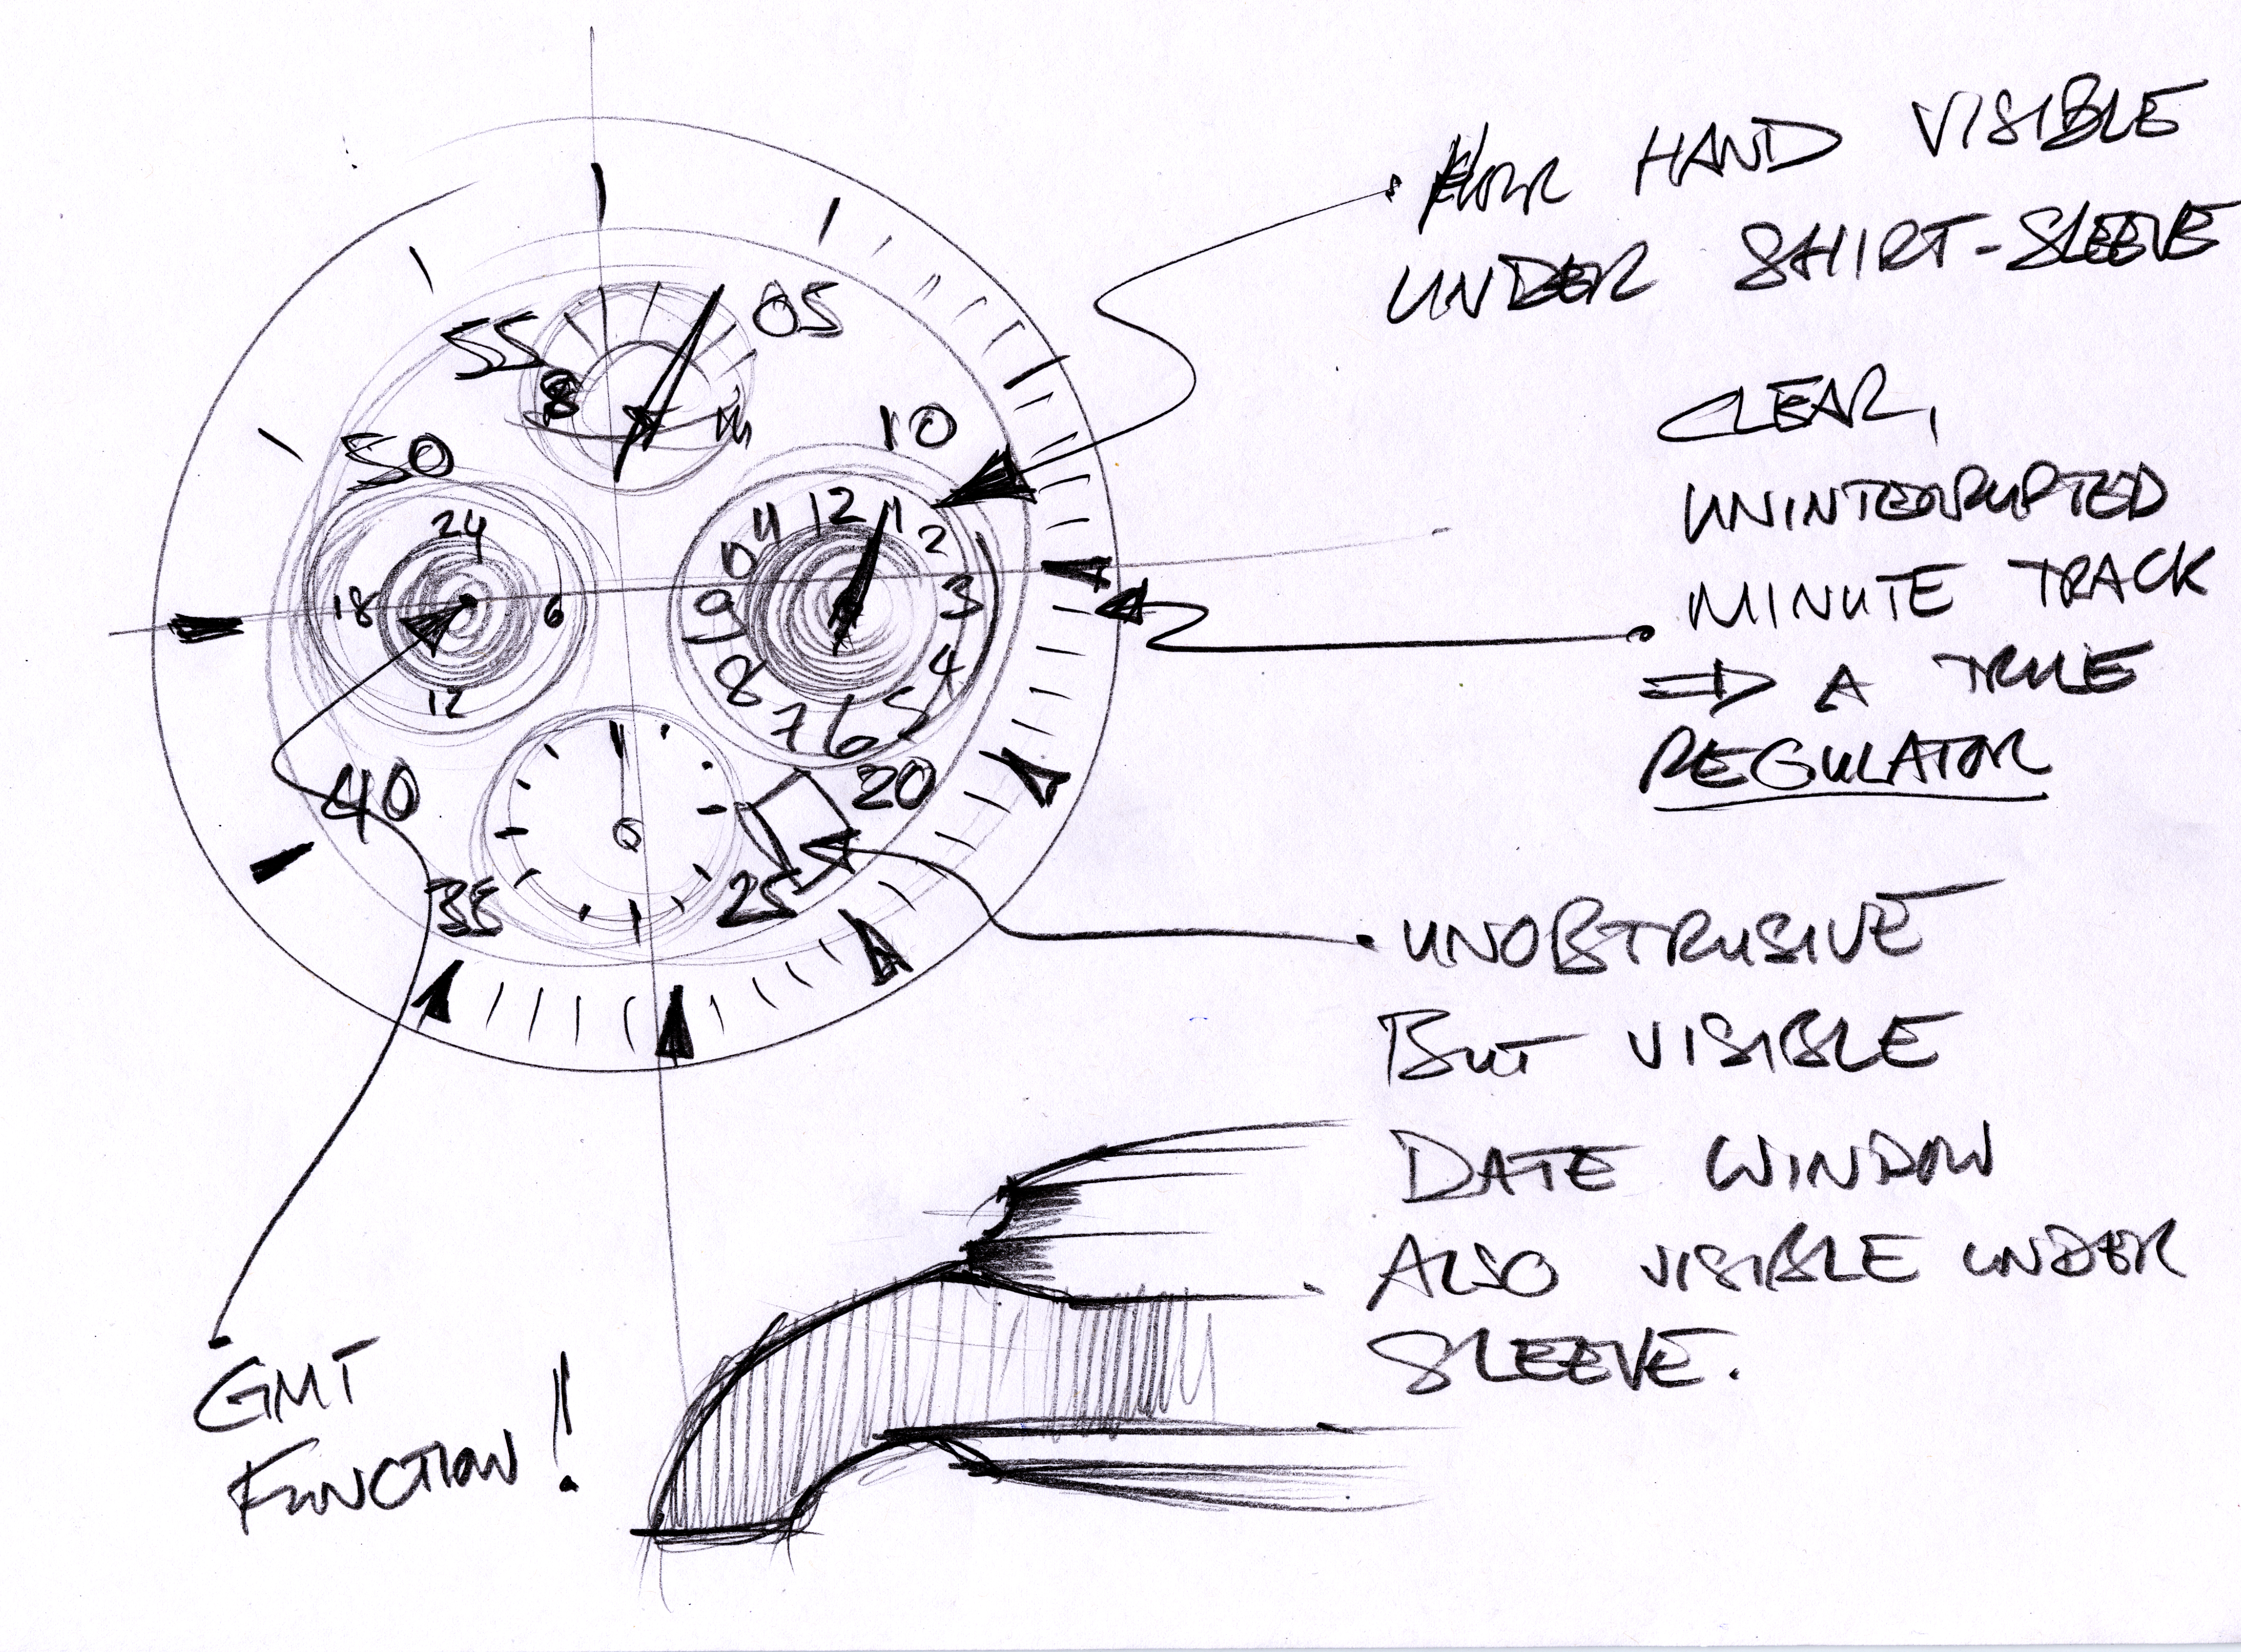 HOUR HAND VISIBLE
UNDER SHIRT-SLEEVE
CLEAR,
UNINTERRUPTED
MINUTE TRACK
⇒ A TRUE
REGULATOR
UNOBSTRUSIVE
BUT VISIBLE
DATE WINDOW
ALSO VISIBLE UNDER
SLEEVE.
GMT
FUNCTION!
55
05
50
10
40
20
35
25
24
18
6
12
12
11
1
10
2
9
3
8
4
7
6
5